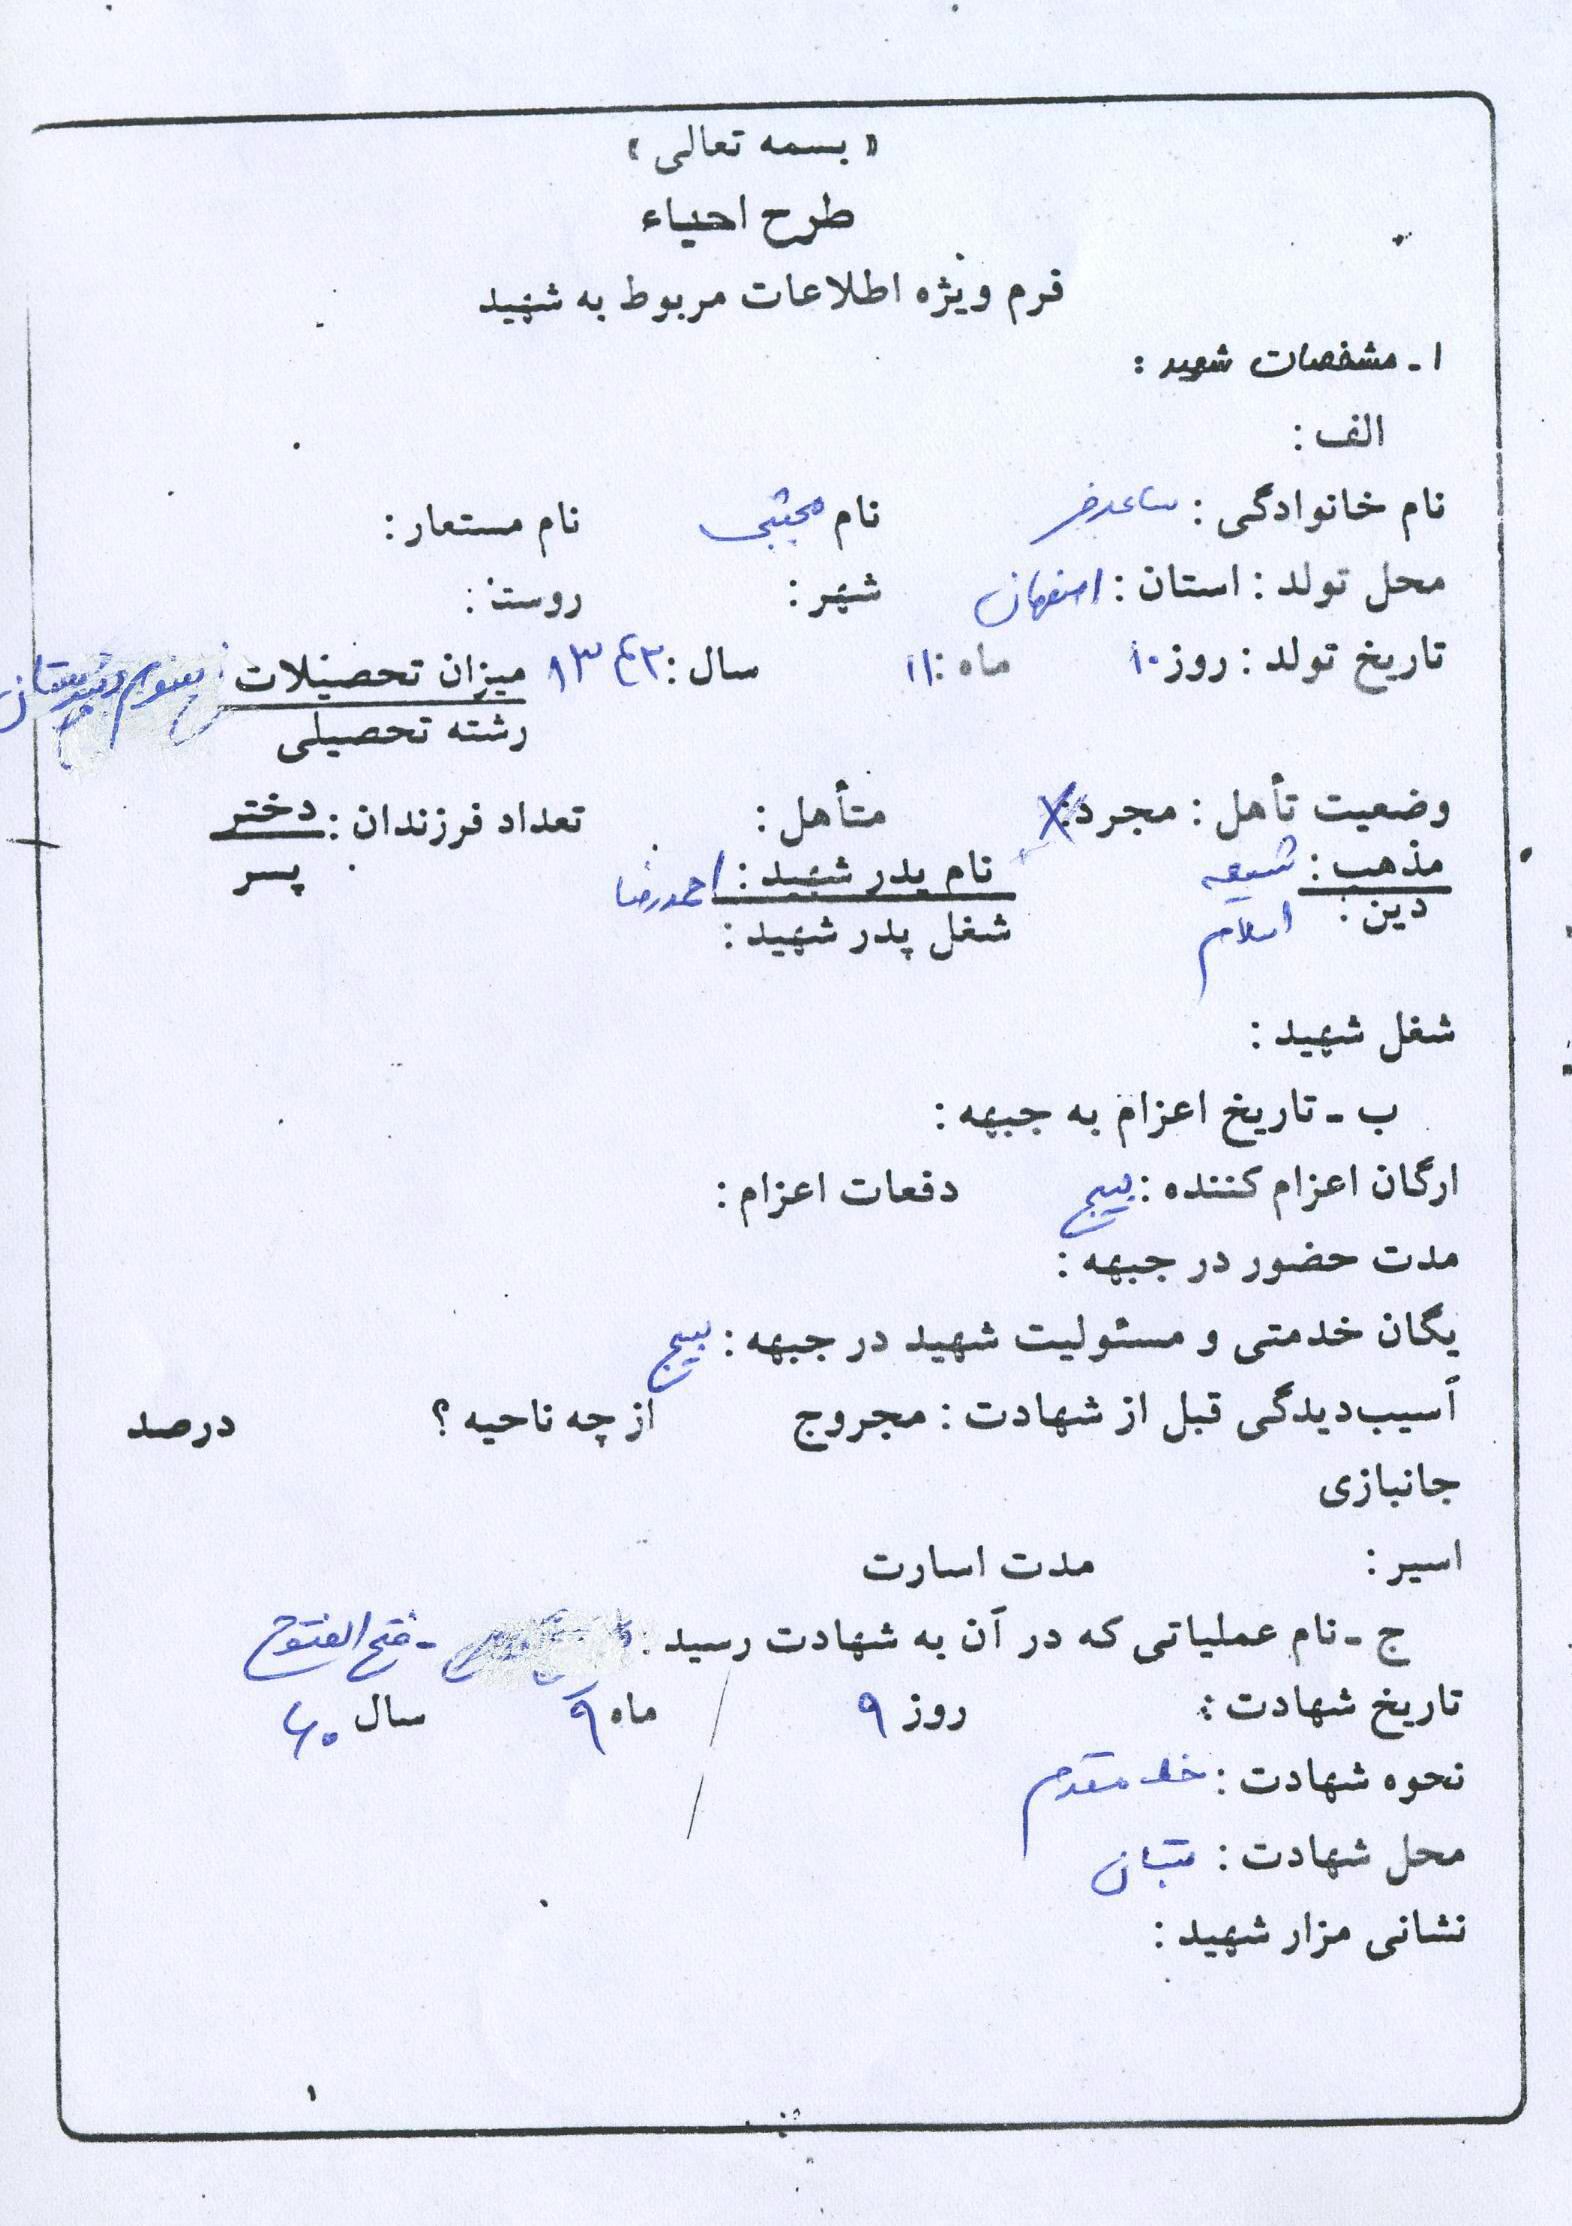 « بسمه تعالی »
طرح احیاء
فرم ویژه اطلاعات مربوط به شهید
۱ـ مشخصات شهید :
الف :
نام خانوادگی : ساعدفر نام مجتبی نام مستعار :
محل تولد : استان : اصفهان شهر : روستا :
تاریخ تولد : روز ۱۰ ماه : ۱۱ سال : ۱۳۴۲ میزان تحصیلات : سوم دبیرستان
رشته تحصیلی
وضعیت تأهل : مجرد : X متأهل : تعداد فرزندان : دختر
پسر
مذهب : شیعه نام پدر شهید : احمدرضا
دین : اسلام شغل پدر شهید :
شغل شهید :
ب ـ تاریخ اعزام به جبهه :
ارگان اعزام کننده : بسیج دفعات اعزام :
مدت حضور در جبهه :
یگان خدمتی و مسئولیت شهید در جبهه : بسیج
آسیب‌دیدگی قبل از شهادت : مجروح از چه ناحیه ؟ درصد
جانبازی
اسیر : مدت اسارت
ج ـ نام عملیاتی که در آن به شهادت رسید : ـ فتح الفتوح
تاریخ شهادت : روز ۹ ماه ۹ سال ۶۰
نحوه شهادت : خط مقدم
محل شهادت :
نشانی مزار شهید :
۱